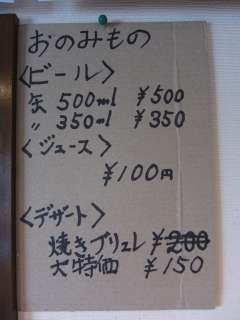 おのみもの
<ビール>
缶 500ml ¥500
〃 350ml ¥350
<ジュース>
¥100円
<デザート>
焼きブリュレ ¥200
大特価 ¥150